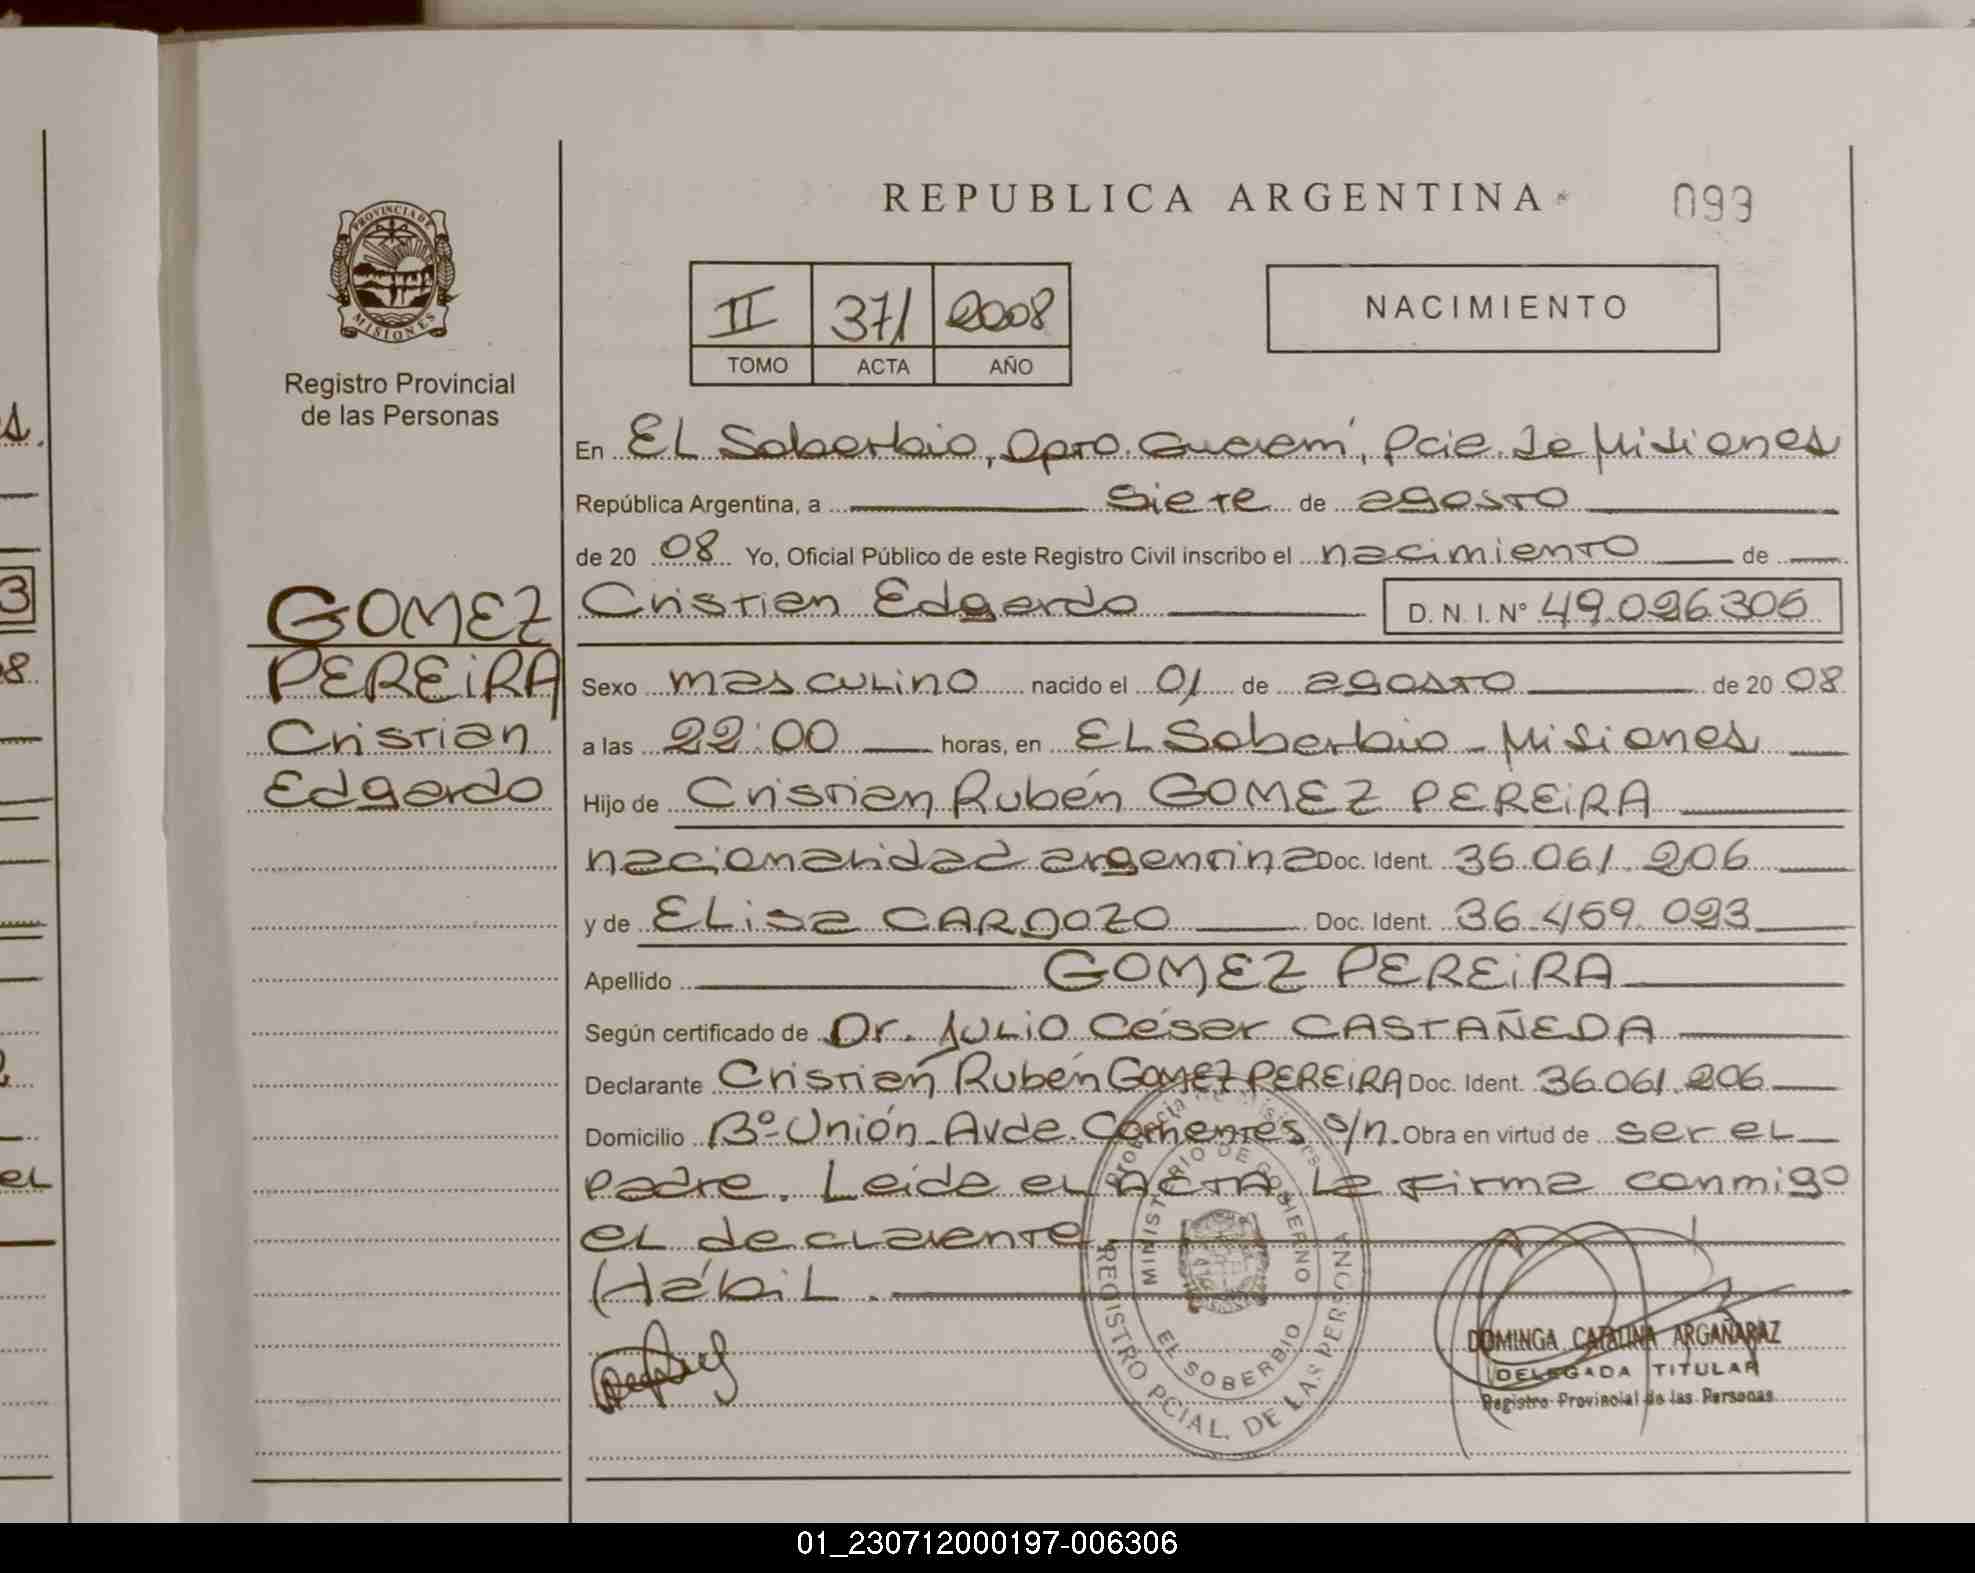 REPUBLICA ARGENTINA
093
PROVINCIA DE MISIONES
Registro Provincial
de las Personas
II 371 2008
TOMO ACTA AÑO
NACIMIENTO
En EL Soberbio, Dpto. Guaraní, Pcia. de Misiones
República Argentina, a siete de agosto
de 20 08 Yo, Oficial Público de este Registro Civil inscribo el nacimiento de
Cristian Edgardo D.N.I.Nº 49.026.306
GOMEZ
PEREiRA
Cristian
Edgardo
Sexo masculino nacido el 01 de agosto de 20 08
a las 22:00 horas, en EL Soberbio - Misiones
Hijo de Cristian Rubén GOMEZ PEREiRA
nacionalidad argentina Doc. Ident. 36.061.206
y de ELisa CARDOZO Doc. Ident. 36.459.093
Apellido GOMEZ PEREiRA
Según certificado de Dr. JULiO César CASTAÑEDA
Declarante Cristian Rubén GOMEZ PEREiRA Doc. Ident. 36.061.206
Domicilio Bº Unión - Avda. Corrientes s/n. Obra en virtud de ser eL
padre. Leída eL ACTA La firma conmigo
eL declarante.
HábiL.
Provincia de Misiones
MINISTERIO DE GOBIERNO
EL SOBERBIO
REGISTRO PCIAL. DE LAS PERSONA
DOMINGA CATALINA ARGAÑARAZ
DELEGADA TITULAR
Registro Provincial de las Personas
s.
3
8
eL
01_230712000197-006306